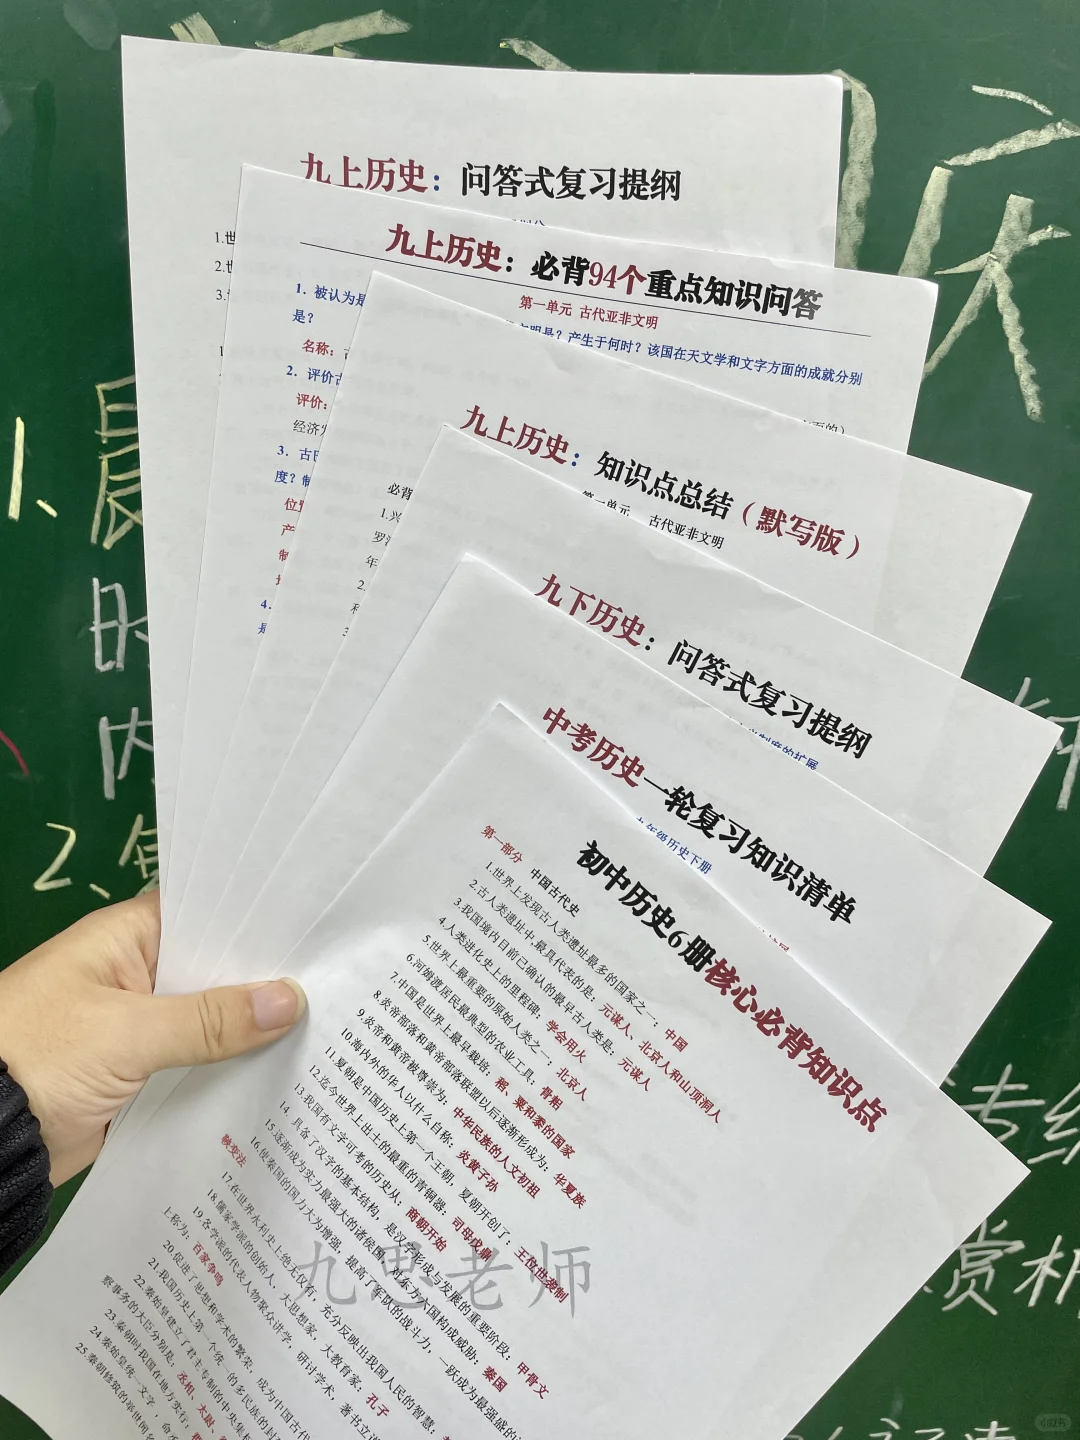 九上历史：问答式复习提纲
1.世
2.世
3.
九上历史：必背94个重点知识问答
第一单元 古代亚非文明
1. 被认为是
文明是？产生于何时？该国在天文学和文字方面的成就分别
是？
名称：
2. 评价古
评价：
经济发
3. 古巴
度？制
位置
产
制
4.
是
九上历史：知识点总结（默写版）
第一单元 古代亚非文明
必背
1.兴
罗
年
2.
九下历史：问答式复习提纲
制度的扩展
中考历史一轮复习知识清单
九年级历史下册
初中历史6册核心必背知识点
第一部分 中国古代史
1.世界上发现古人类遗址最多的国家之一：中国
2.古人类遗址中,最具代表的是：元谋人、北京人和山顶洞人
3.我国境内目前已确认的最早古人类是：元谋人
4.人类进化史上的里程碑：学会用火
5.世界上最重要的原始人类之一：北京人
6.河姆渡居民最典型的农业工具：骨耜
7.中国是世界上最早栽培：稻、粟和黍的国家
8.炎帝部落和黄帝部落联盟以后逐渐形成为：华夏族
9.炎帝和黄帝被尊崇为：中华民族的人文初祖
10.海内外的华人以什么自称：炎黄子孙
11.夏朝是中国历史上第一个王朝，夏朝开创了：王位世袭制
12.迄今世界上出土的最重的青铜器：司母戊鼎
13.我国有文字可考的历史从：商朝开始
14.具备了汉字的基本结构，是汉字形成与发展的重要阶段：甲骨文
15.逐渐成为实力最强大的诸侯国，对东方六国构成威胁：秦国
16.使秦国的国力大为增强，提高了军队的战斗力，一跃成为最强盛的
鞅变法
17.在世界水利史上绝无仅有，充分反映出我国人民的智慧：
18.儒家学派的创始人，大思想家，大教育家：孔子
19.各学派的代表人物聚众讲学，研讨学术，著书立说
上称为：百家争鸣
20.促进了思想和学术的繁荣，成为中国古代
21.我国历史上第一个统一的多民族的封
22.秦始皇建立了君主专制的中央集权
察事务的大臣分别是：丞相、太尉、
23.秦朝时我国在地方实行：
24.秦始皇统一文字，命
25.秦朝修筑的举世闻名
九思老师
1、晨
时
内
2、
专
赏析
小红书